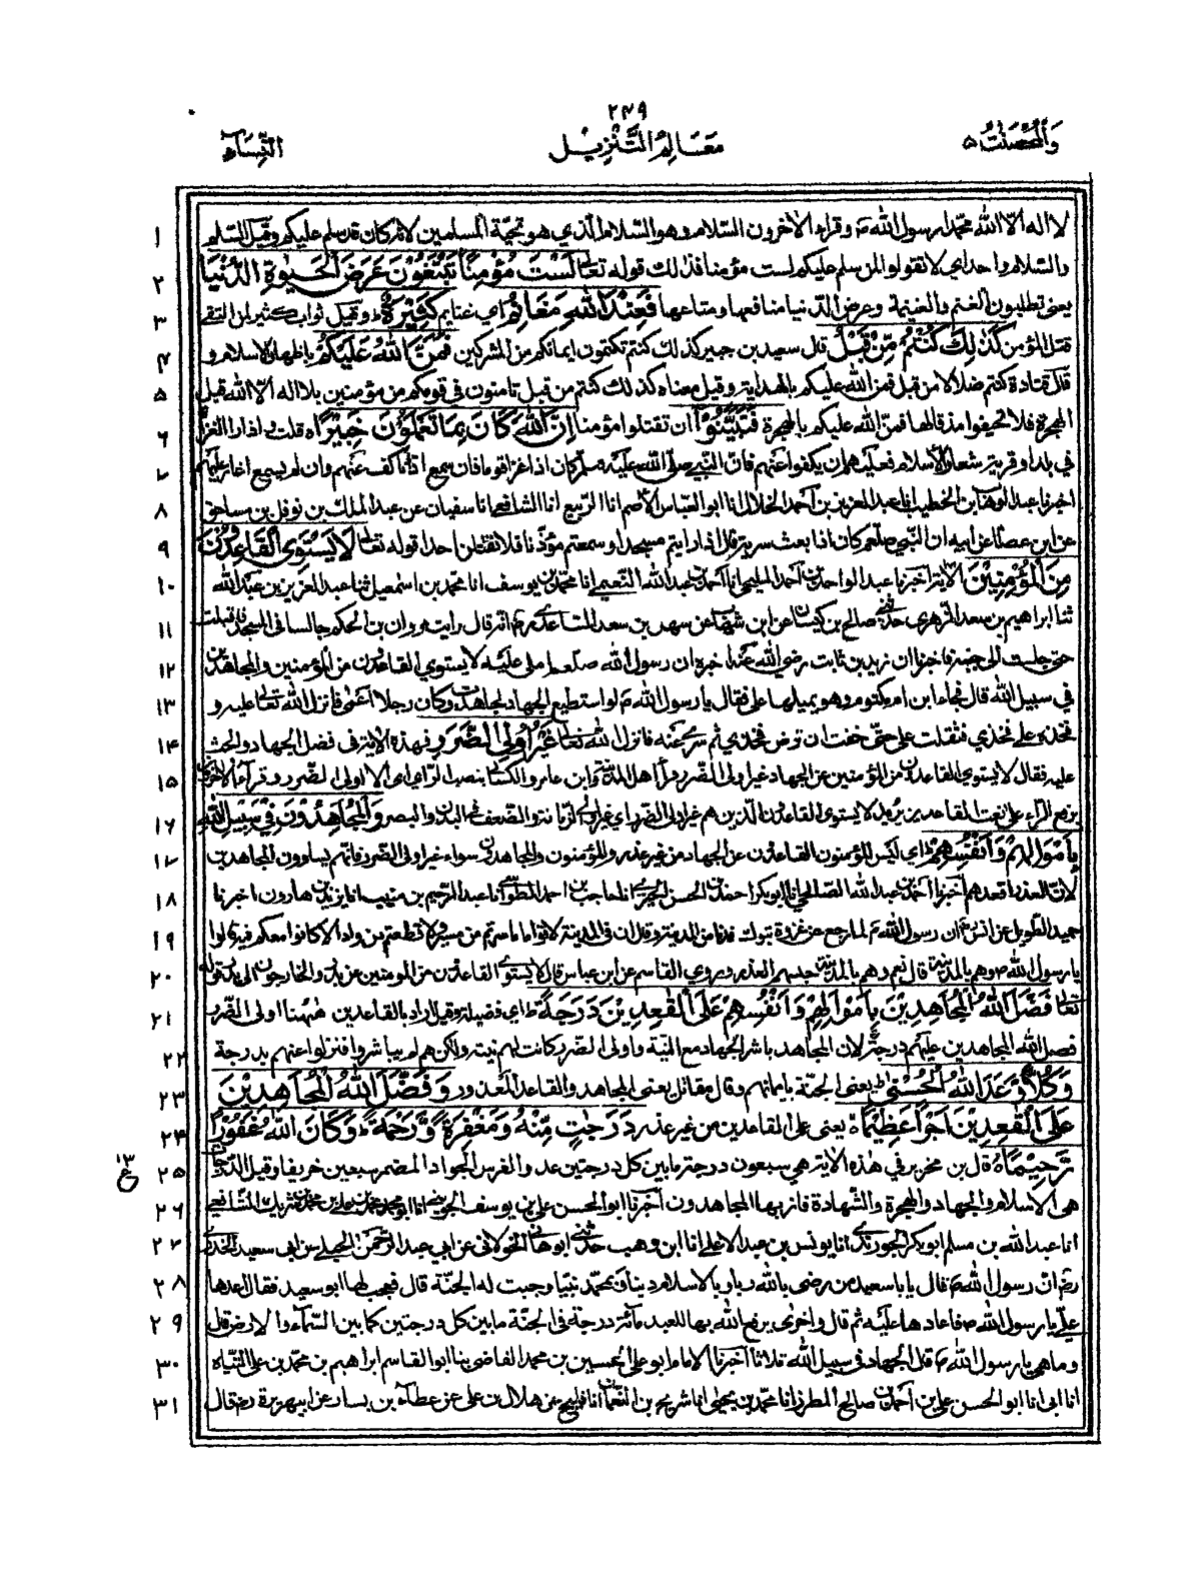 ۲۴۹
وَالْمُحْصَنٰتُ ۵ مَعَالِمُ التَّنْزِيْل النِّسَآء
لا اله الا الله محمد رسول الله ۴ وقراءة الاخرون السلام وهو السلام الذي هو تحية المسلمين لانه كان قد سلم عليكم وقيل السلم ۱
والسلام واحد اي لا تقولوا لمن سلم عليكم لست مؤمنا فذلك قوله تعالى لَسْتَ مُؤْمِنًا تَبْتَغُوْنَ عَرَضَ الْحَيٰوةِ الدُّنْيَا ۲
يعني تطلبون الغنم والغنيمة وعرض الدنيا منافعها ومتاعها فَعِنْدَ اللّٰهِ مَغَانِمُ اي غنايم كَثِيْرَةٌ ط وقيل ثواب كثير لمن اتقى ۳
قتل المؤمن كَذٰلِكَ كُنْتُمْ مِّنْ قَبْلُ قال سعيد بن جبير كذلك كنتم تكتمون ايمانكم من المشركين فَمَنَّ اللّٰهُ عَلَيْكُمْ باظهار الاسلام و ۴
قال قتادة كنتم ضلالا من قبل فمن الله عليكم بالهداية وقيل معناه كذلك كنتم من قبل تامنون في قومكم من مؤمنين بلا اله الا الله قبل ۵
الهجرة فلا تخيفوا من قالها فمن الله عليكم بالهجرة فَتَبَيَّنُوْا ان تقتلوا مؤمنا اِنَّ اللّٰهَ كَانَ بِمَا تَعْمَلُوْنَ خَبِيْرًا ۝ قلت اذا راى الغزاة ۶
في بلد او قرية شعار الاسلام فعليهم ان يكفوا عنهم فان النبي صلى الله عليه وسلم كان اذا غزا قوما فان سمع اذانا كف عنهم وان لم يسمع اغار عليهم ۷
اخبرنا عبد الوهاب بن الخطيب انا عبد العزيز بن احمد الخلال انا ابو العباس الاصم انا الربيع انا الشافعي انا سفيان عن عبد الملك بن نوفل بن مساحق ۸
عن ابن عصام عن ابيه ان النبي صلعم كان اذا بعث سرية قال اذا رايتم مسجدا او سمعتم مؤذنا فلا تقتلن احدا قوله تعالى لَا يَسْتَوِي الْقَاعِدُوْنَ ۹
مِنَ الْمُؤْمِنِيْنَ الاية اخبرنا عبد الواحد بن احمد المليحي انا احمد بن عبد الله النعيمي انا محمد بن يوسف انا محمد بن اسمعيل ثنا عبد العزيز بن عبد الله ۱۰
ثنا ابراهيم بن سعد الزهري حدثني صالح بن كيسان عن ابن شهاب عن سهل بن سعد الساعدي انه قال رايت مروان بن الحكم جالسا في المسجد فاقبلت ۱۱
حتى جلست الى جنبه فاخبرنا ان زيد بن ثابت رضي الله عنه اخبره ان رسول الله صلعم املى عليه لا يستوي القاعدون من المؤمنين والمجاهدون ۱۲
في سبيل الله قال فجاءه ابن ام مكتوم وهو يمليها علي فقال يا رسول الله ۴ لو استطيع الجهاد لجاهدت وكان رجلا اعمى فانزل الله تعالى عليه و ۱۳
فخذه على فخذي فثقلت علي حتى خفت ان ترض فخذي ثم سري عنه فانزل الله تعالى غَيْرُ اُولِي الضَّرَرِ فهذه الاية في فضل الجهاد والحث ۱۴
عليه فقال لا يستوي القاعدون من المؤمنين عن الجهاد غير اولى الضرر قرأ اهل المدينة وابن عامر والكسائي بنصب الراي اي الا اولى الضرر وقرأ الاخرون ۱۵
برفع الراء على نعت القاعدين يريد لا يستوى القاعدون الذين هم غير اولى الضرر اي غير اولى الزمانة والضعف في البدن والبصر وَالْمُجَاهِدُوْنَ فِيْ سَبِيْلِ اللّٰهِ ۱۶
بِاَمْوَالِهِمْ وَاَنْفُسِهِمْ ط اي ليس المؤمنون القاعدون عن الجهاد من غير عذر والمؤمنون والمجاهدون سواء غير اولى الضرر فانهم يساوون المجاهدين ۱۷
لان العذر اقعدهم اخبرنا احمد بن عبد الله الصالحي انا ابو بكر احمد بن الحسن الحيري انا حاجب بن احمد الطوسي انا عبد الرحيم بن منيب انا يزيد بن هارون اخبرنا ۱۸
حميد الطويل عن انس ان رسول الله ۴ لما رجع من غزوة تبوك فدنا من المدينة وقال ان في المدينة لاقواما ما سرتم من مسير ولا قطعتم من واد الا كانوا معكم فيه قالوا ۱۹
يا رسول الله ۴ وهم بالمدينة قال نعم وهم بالمدينة حبسهم العذر وروي القاسم عن ابن عباس قال لا يستوي القاعدون من المؤمنين عن بدر والخارجون الى بدر قوله ۲۰
تعالى فَضَّلَ اللّٰهُ الْمُجَاهِدِيْنَ بِاَمْوَالِهِمْ وَاَنْفُسِهِمْ عَلَى الْقٰعِدِيْنَ دَرَجَةً ط اي فضيلة وقيل اراد بالقاعدين ههنا اولى الضرر ۲۱
فضل الله المجاهدين عليهم درجة لان المجاهد باشر الجهاد مع النية واولى الضرر كانت لهم نية ولكن هم لم يباشروا فنزلوا عنهم بدرجة ۲۲
وَكُلًّا وَّعَدَ اللّٰهُ الْحُسْنٰى ط يعني الجنة بايمانهم وقال مقاتل يعني المجاهد والقاعد المعذور وَفَضَّلَ اللّٰهُ الْمُجَاهِدِيْنَ ۲۳
عَلَى الْقٰعِدِيْنَ اَجْرًا عَظِيْمًا ۝ يعني على القاعدين من غير عذر دَرَجٰتٍ مِّنْهُ وَمَغْفِرَةً وَّرَحْمَةً ط وَكَانَ اللّٰهُ غَفُوْرًا ۲۴
رَّحِيْمًا ۝ قال بن محيريز في هذه الاية هي سبعون درجة ما بين كل درجتين عدو الفرس الجواد المضمر سبعين خريفا وقيل الدرجات ۲۵
۱۳ ع
هي الاسلام والجهاد والهجرة والشهادة فاز بها المجاهدون اخبرنا ابو الحسن علي بن يوسف الجويني انا ابو محمد محمد بن علي بن محمد بن شريك الشافعي ۲۶
انا عبد الله بن مسلم ابو بكر الجوربذي انا يونس بن عبد الاعلى انا ابن وهب حدثني ابو هاني الخولاني عن ابي عبد الرحمن الحبلي عن ابي سعيد الخدري ۲۷
رض ان رسول الله ۴ قال يا با سعيد من رضي بالله ربا وبالاسلام دينا وبمحمد نبيا وجبت له الجنة قال فعجب لها ابو سعيد فقال اعدها ۲۸
علي يا رسول الله ۴ فاعادها عليه ثم قال واخرى يرفع الله بها للعبد مائة درجة في الجنة ما بين كل درجتين كما بين السماء والارض قال ۲۹
وما هي يا رسول الله ۴ قال الجهاد في سبيل الله ثلاثا اخبرنا الامام ابو علي الحسين بن محمد القاضي ثنا ابو القاسم ابراهيم بن محمد بن علي الشاه ۳۰
انا ابي انا ابو الحسن علي بن احمد بن صالح المطرز انا محمد بن يحيى انا شريح بن النعمان انا فليح عن هلال بن علي عن عطاء بن يسار عن ابي هريرة رض قال ۳۱